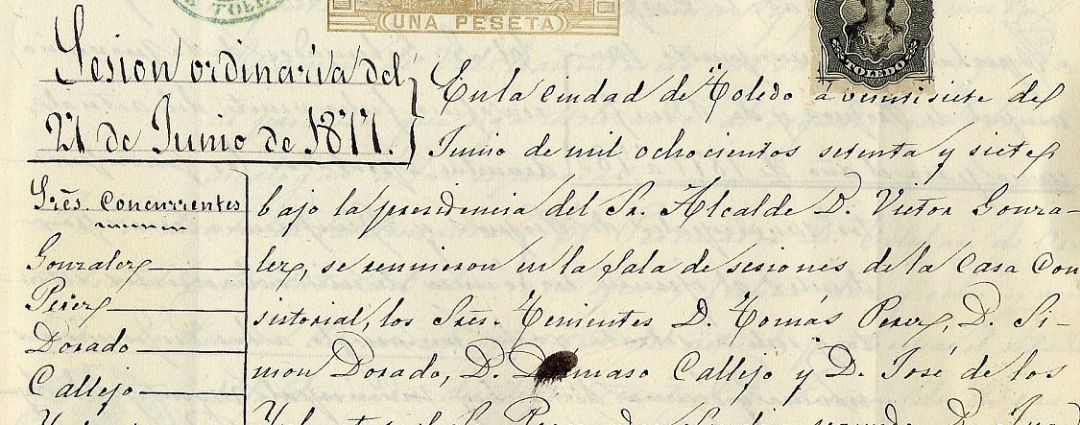 TOLEDO
UNA PESETA
TOLEDO
Sesion ordinaria del
27 de Junio de 1877.
En la ciudad de Toledo á veintisiete de
Junio de mil ochocientos setenta y siete,
Sres. Concurrentes
Gonzalez
Perez
Dorado
Callejo
bajo la presidencia del Sr. Alcalde D. Victor Gonza-
lez, se reunieron en la sala de sesiones de la Casa Con
sistorial, los Sres. Tenientes D. Tomás Perez, D. Si-
mon Dorado, D. Damaso Callejo y D. José de los